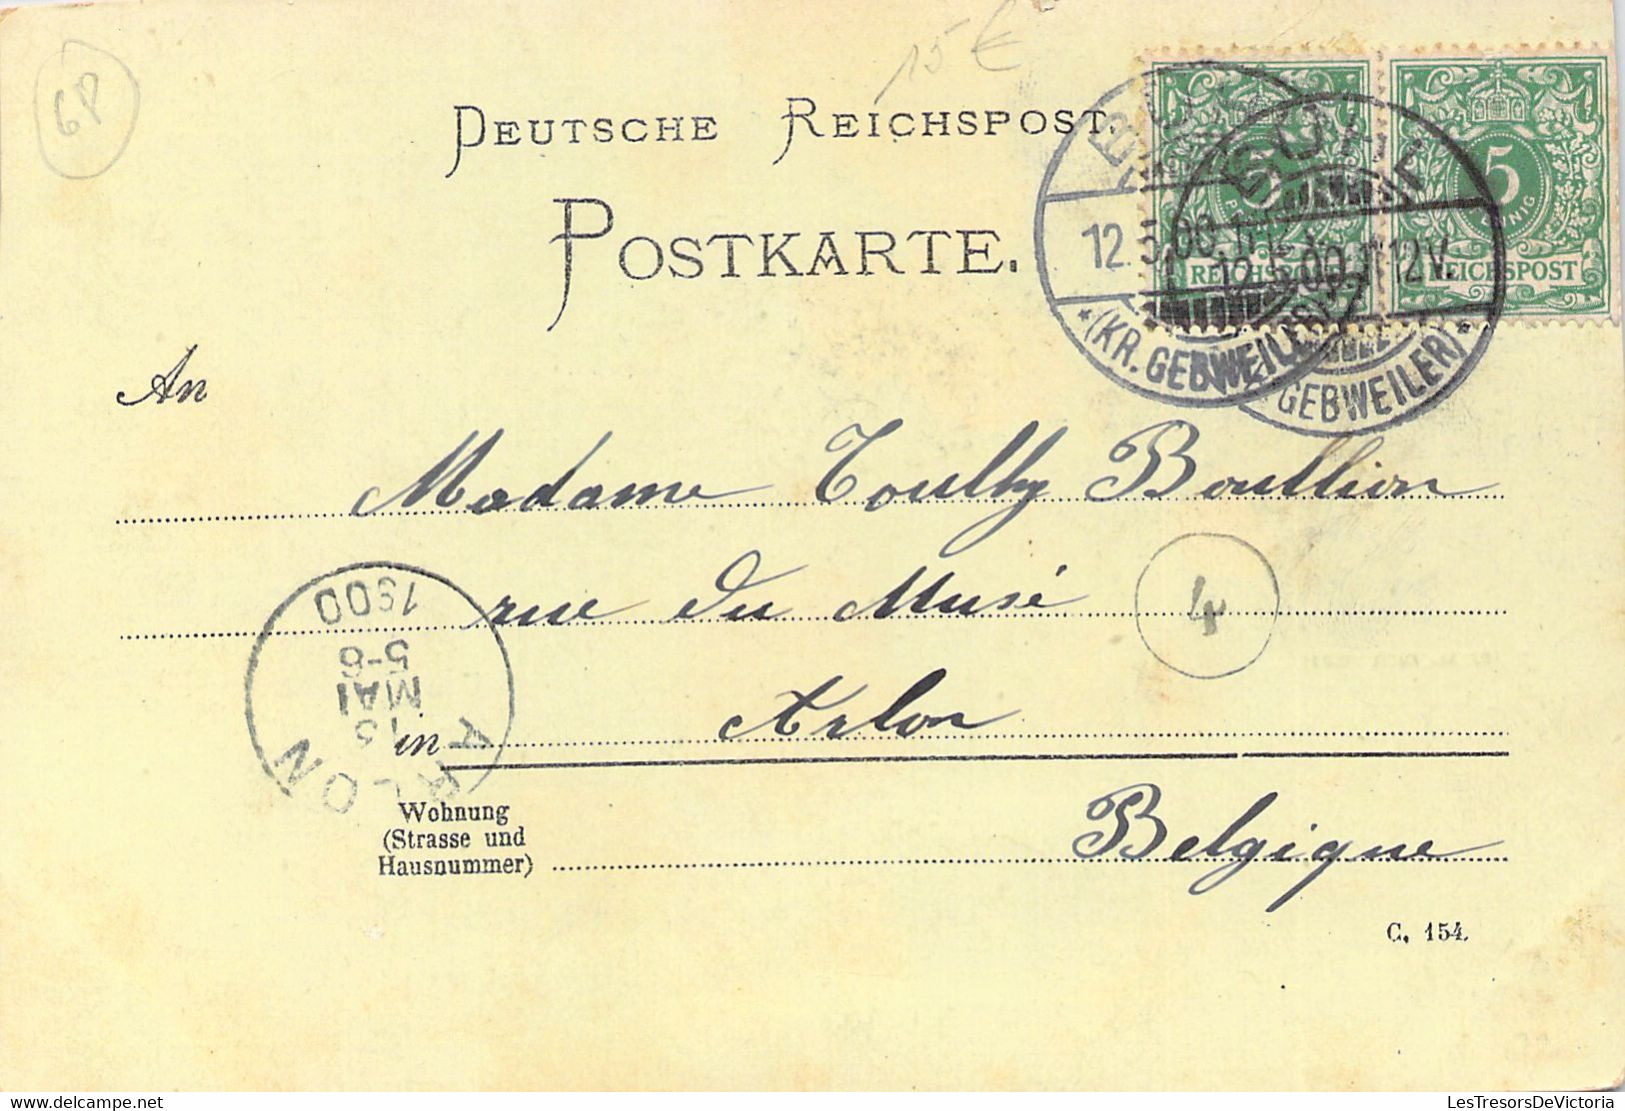 68
15 €
DEUTSCHE REICHSPOST.
POSTKARTE.
5
REICHSPOST
5
REICHSPOST
BÜHL
12.5.00.
(KR. GEBWEILER)
BÜHL
12.5.00. 11-12V.
GEBWEILER)
An
Madame Toulby Boullion
rue du Musé
4
in Arlon
ARLON
13
MAI
5-6
1900
Wohnung
(Strasse und
Hausnummer)
Belgique
C. 154.
LesTresorsDeVictoria